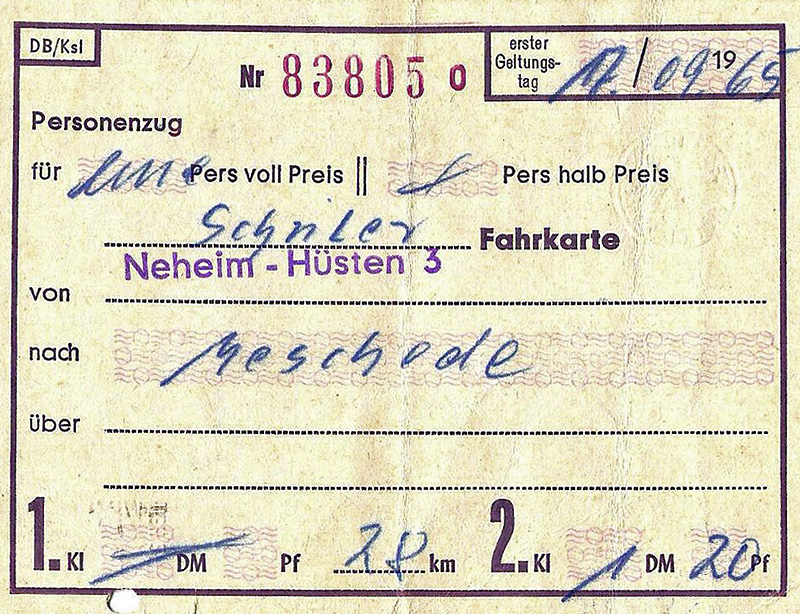 DB/Ksl
Nr 83805 0
erster Geltungstag 17/09 1965
Personenzug
für eine Pers voll Preis || Pers halb Preis
Schüler Fahrkarte
Neheim - Hüsten 3
von
nach Meschede
über
1. Kl DM Pf 28 km 2. Kl 1 DM 20 Pf